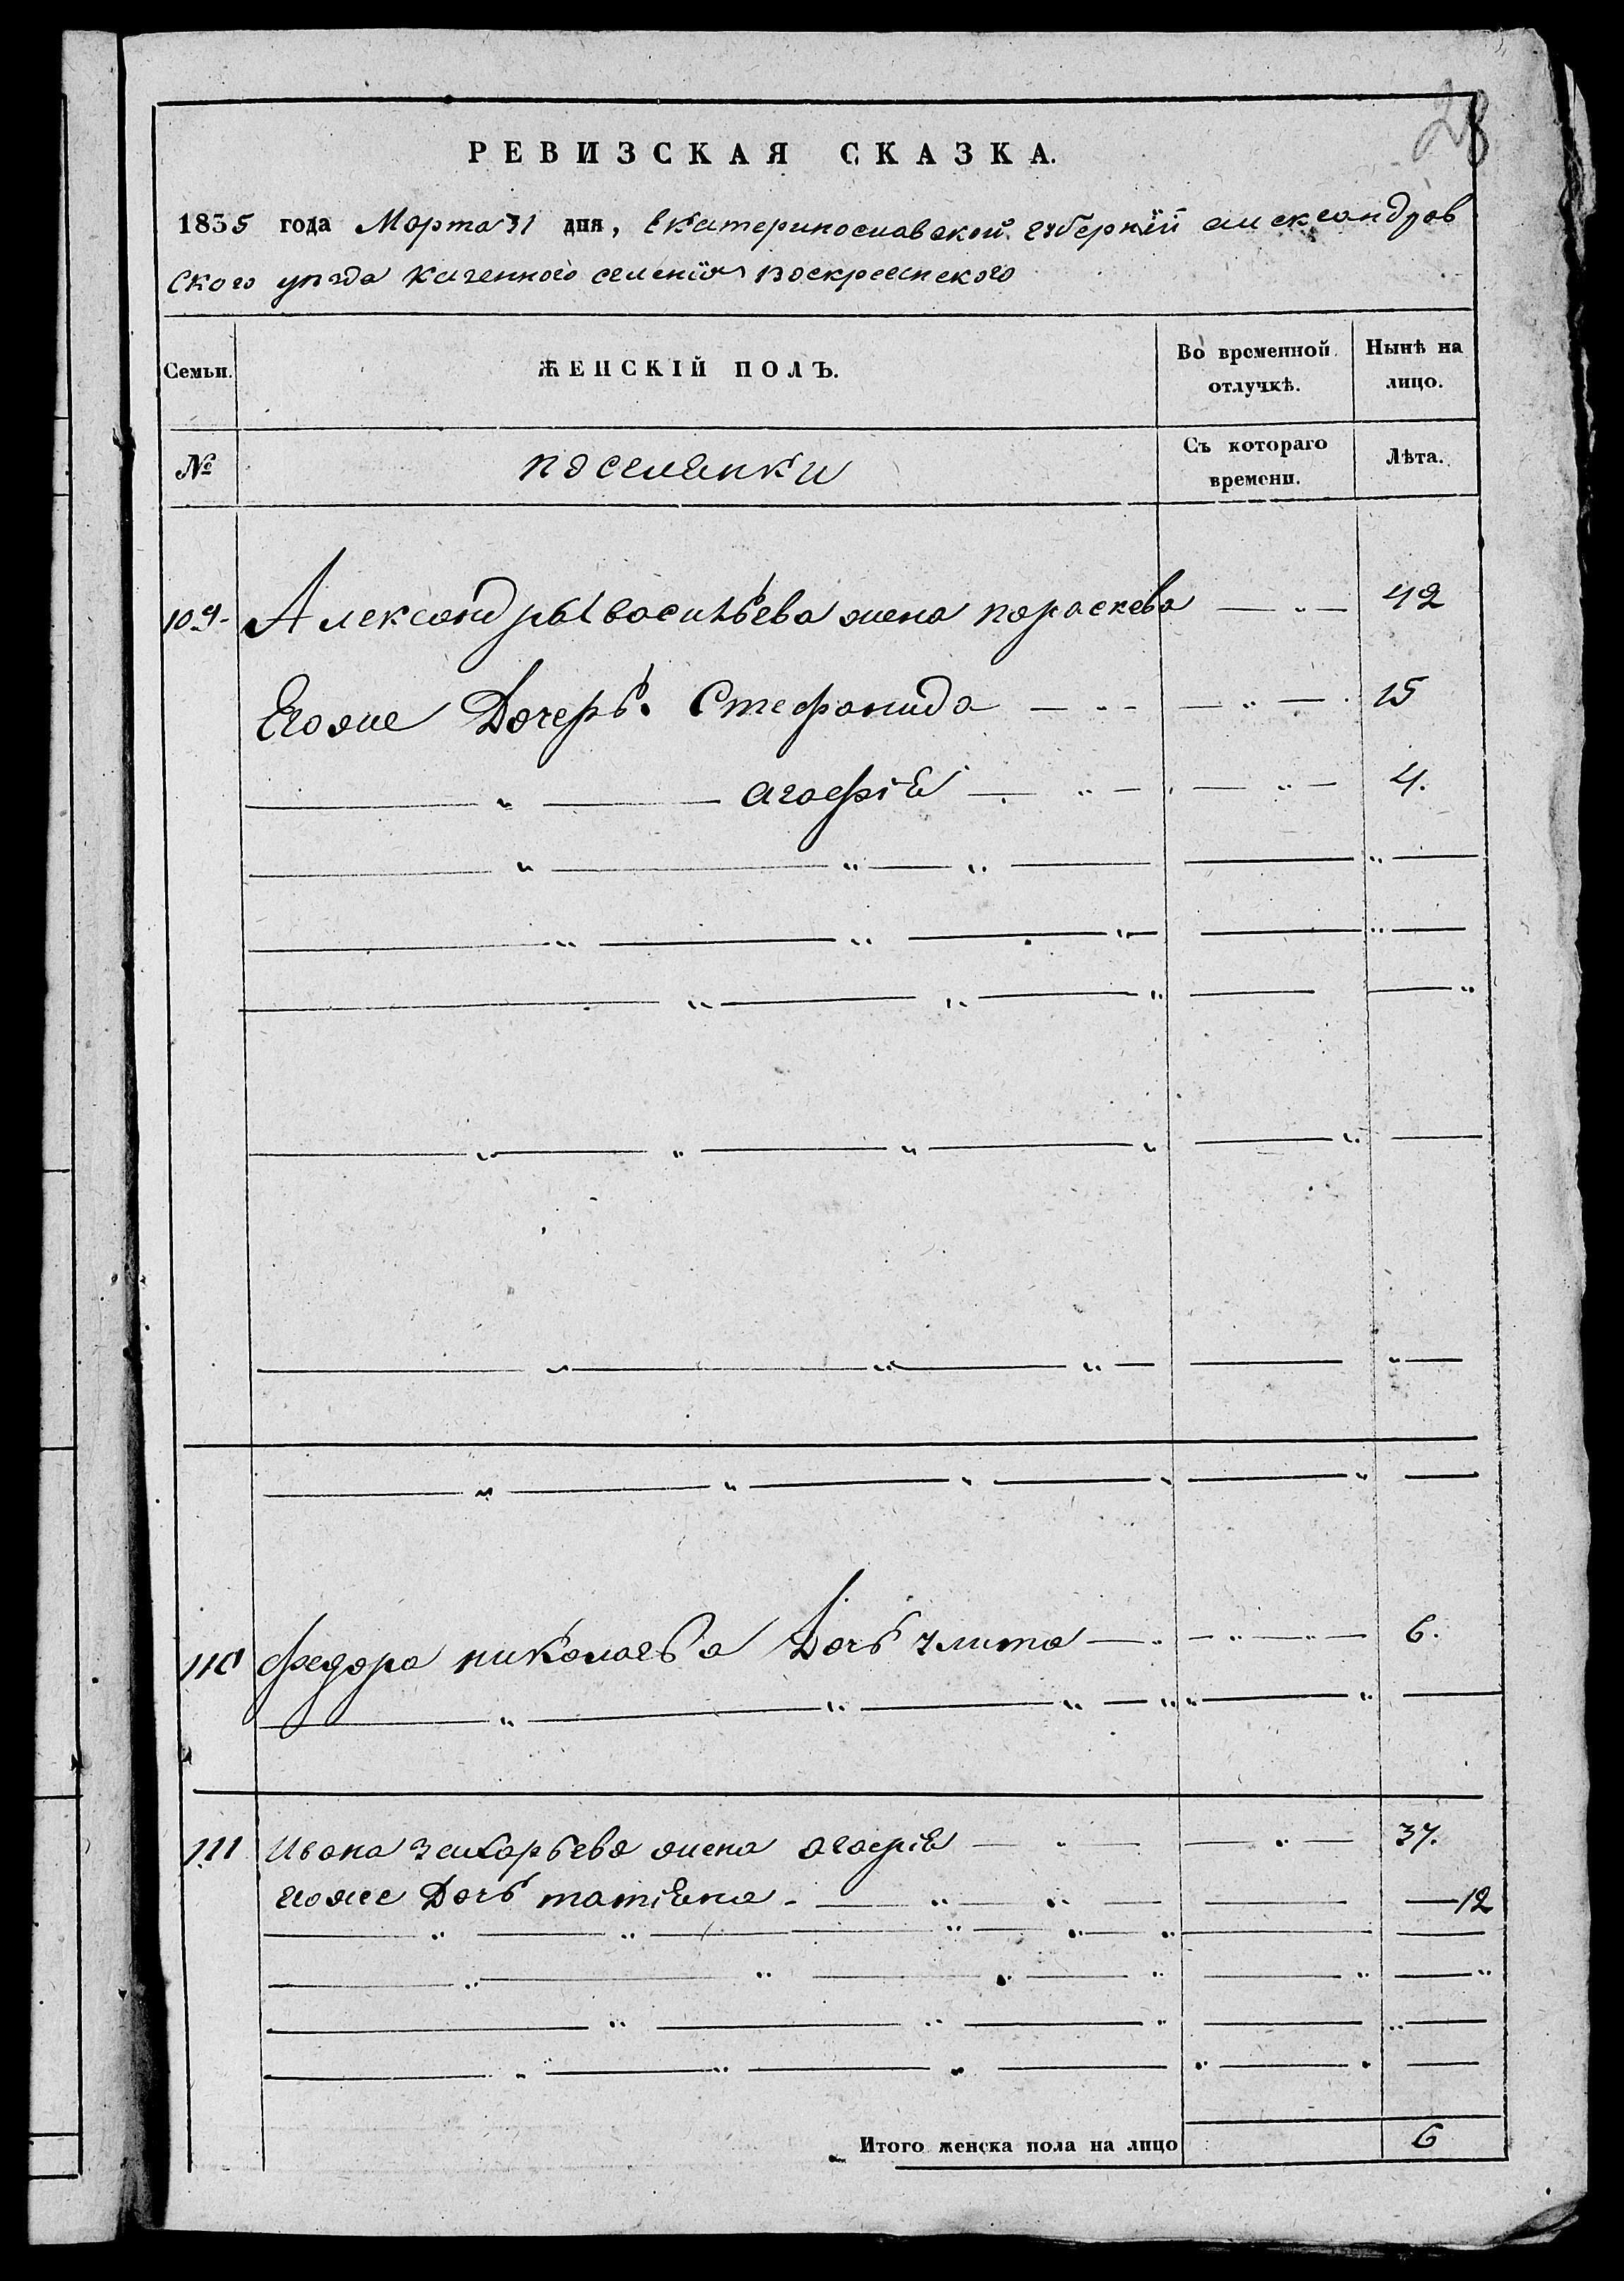 28
РЕВИЗСКАЯ СКАЗКА.
1835 года Марта 31 дня, Екатеринославской губернїй александров
ского уезда казенного селенїя воскресенского
Семьи. ЖЕНСКІЙ ПОЛЪ. Во временной отлучкѣ. Нынѣ на лицо.
№ поселянки Съ котораго времени. Лѣта.
109 Александра васильева жена параскева 42
Егоже Дочерь. Стефанида 15
агафія 4.
110 федора николаева Дочь улита 6.
111 Ивана захарьева жена агафія 37.
егоже Дочь татіяна 12
Итого женска пола на лицо 6